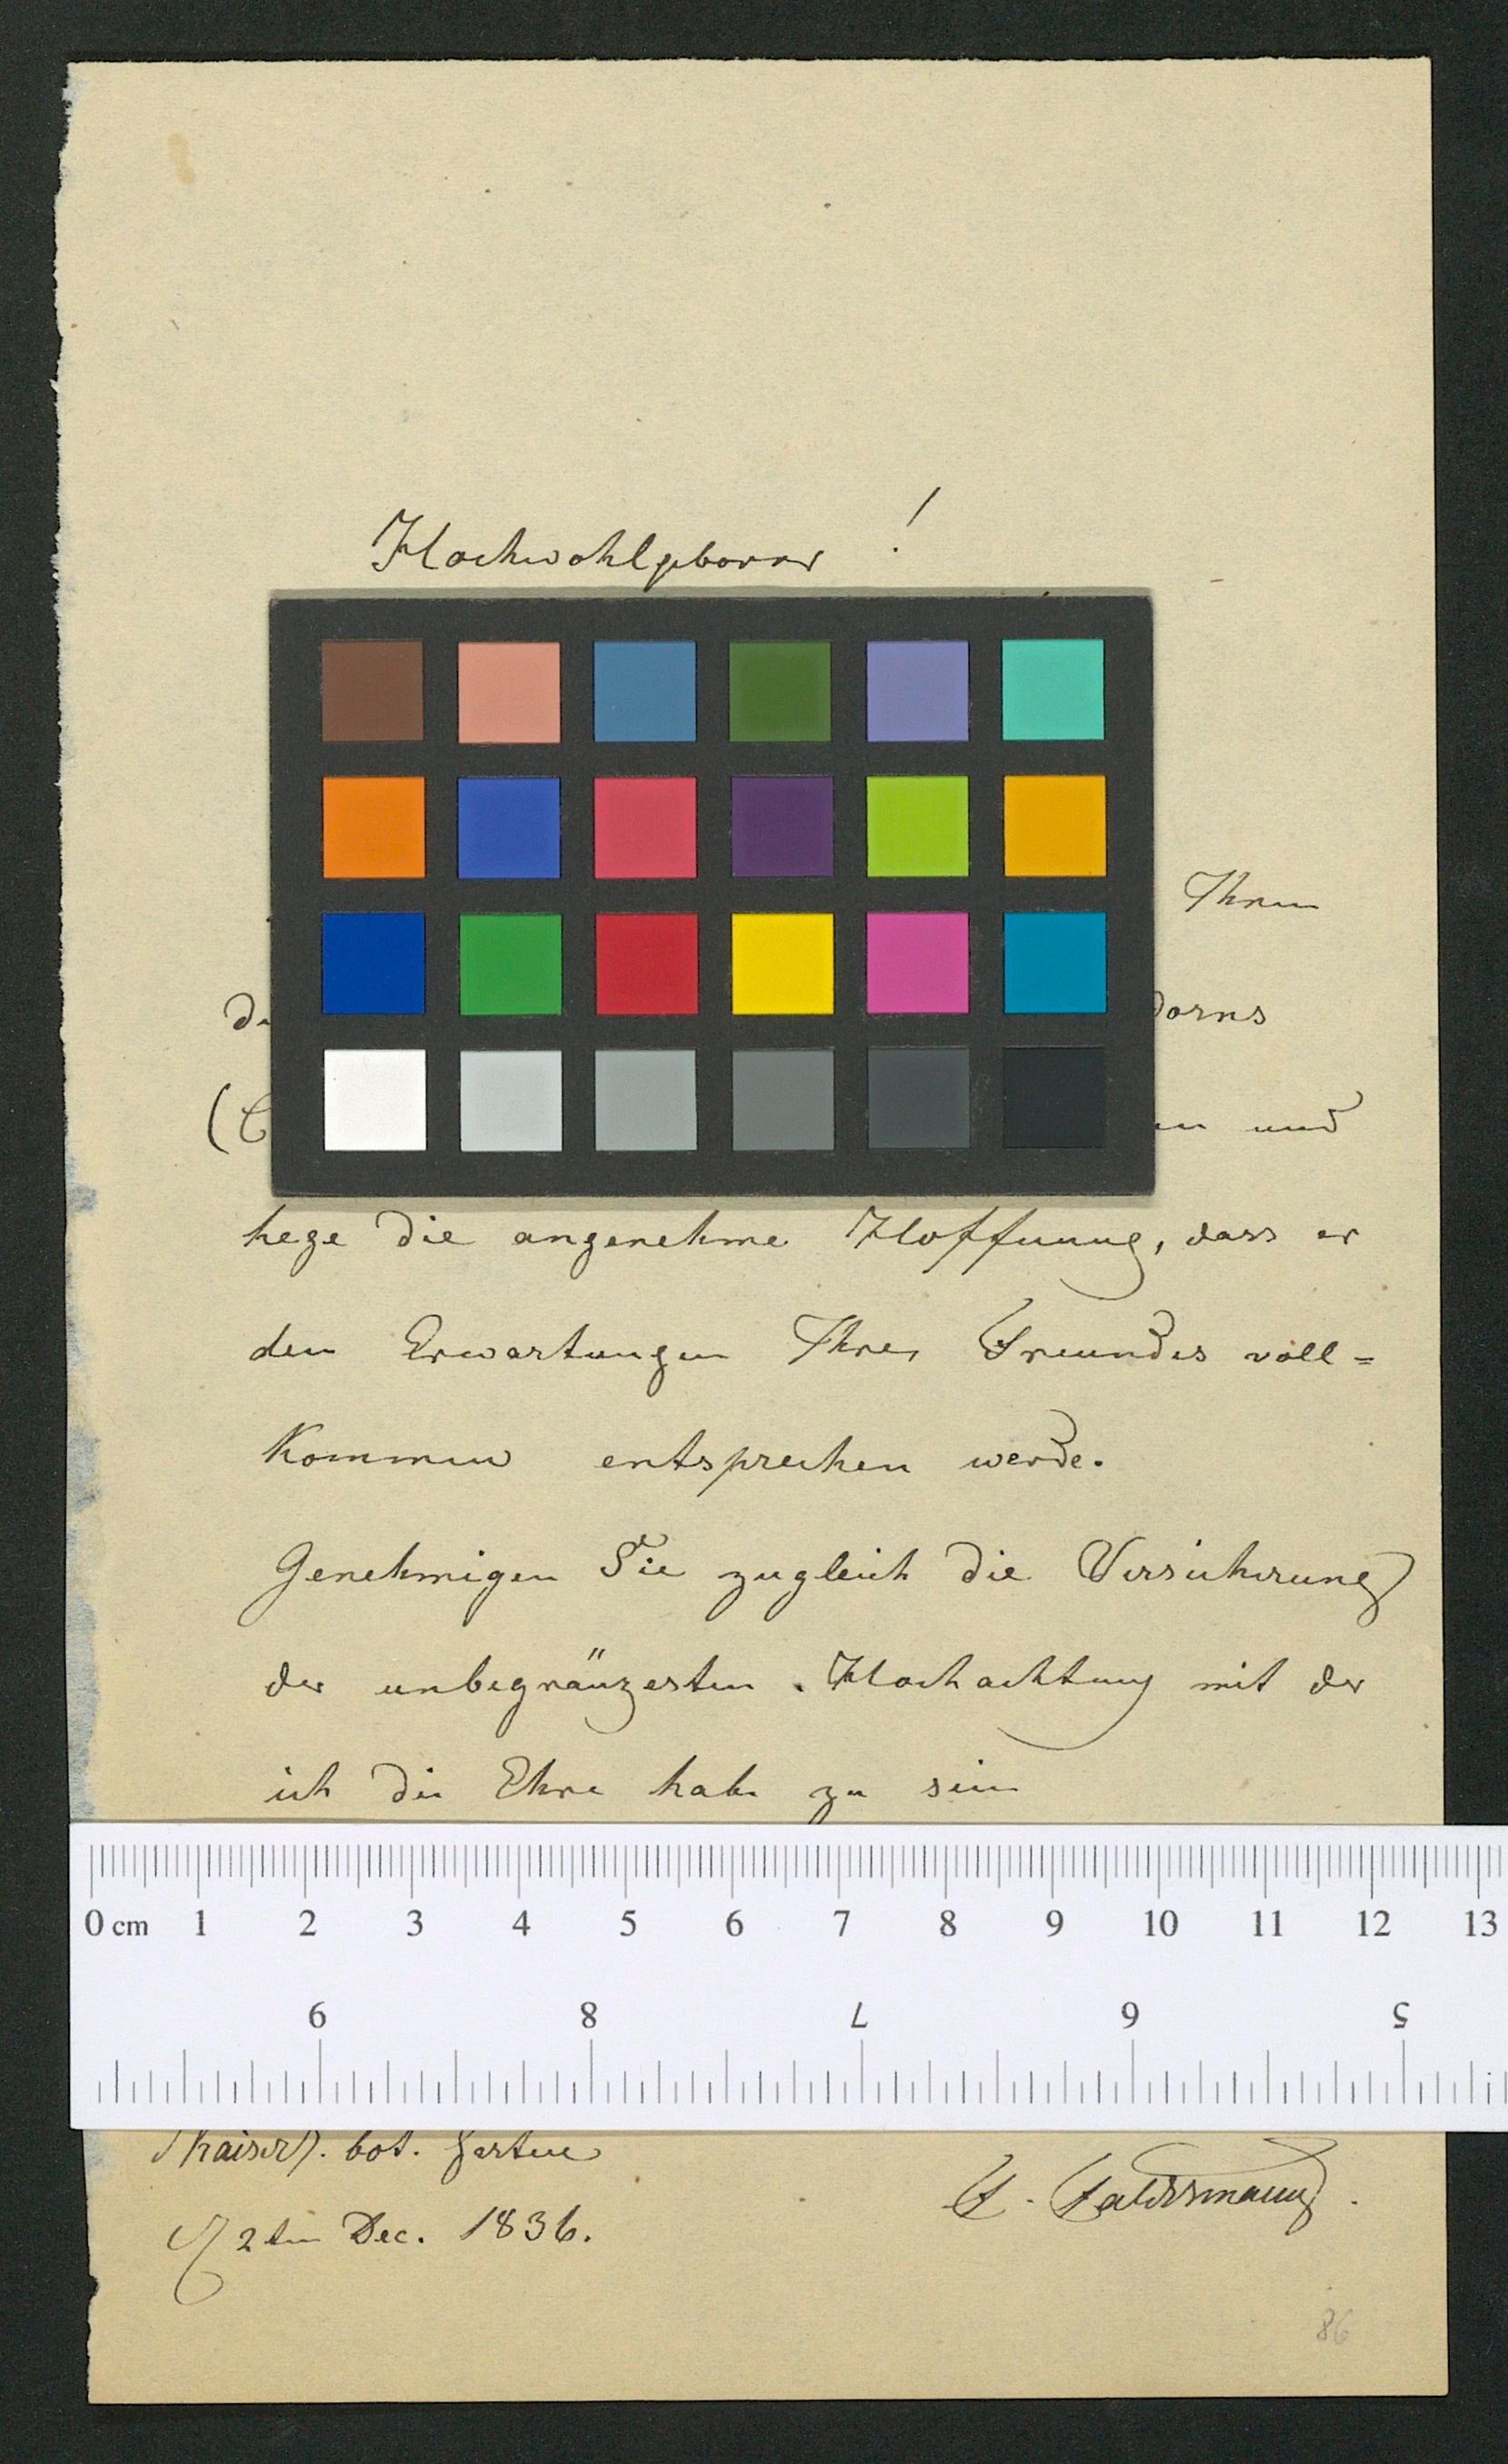 Hochwohlgeborner !
Ihnen
dorns
und
hege die angenehme Hoffnung, dass er
den Erwartungen Ihres Freundes voll=
kommen entsprechen werde.
Genehmigen Sie zugleich die Versicherung
der unbegränzesten Hochachtung mit der
ich die Ehre habe zu sein
0 cm 1 2 3 4 5 6 7 8 9 10 11 12 13
9 8 7 6 5
Kaiserl. bot. Garten
F. Faldermann.
2ten Dec. 1836.
86